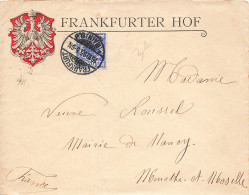 FRANKFURTER HOF
Madame
Veuve Roussel
Mairie de Nancy
Meurthe et Moselle
France